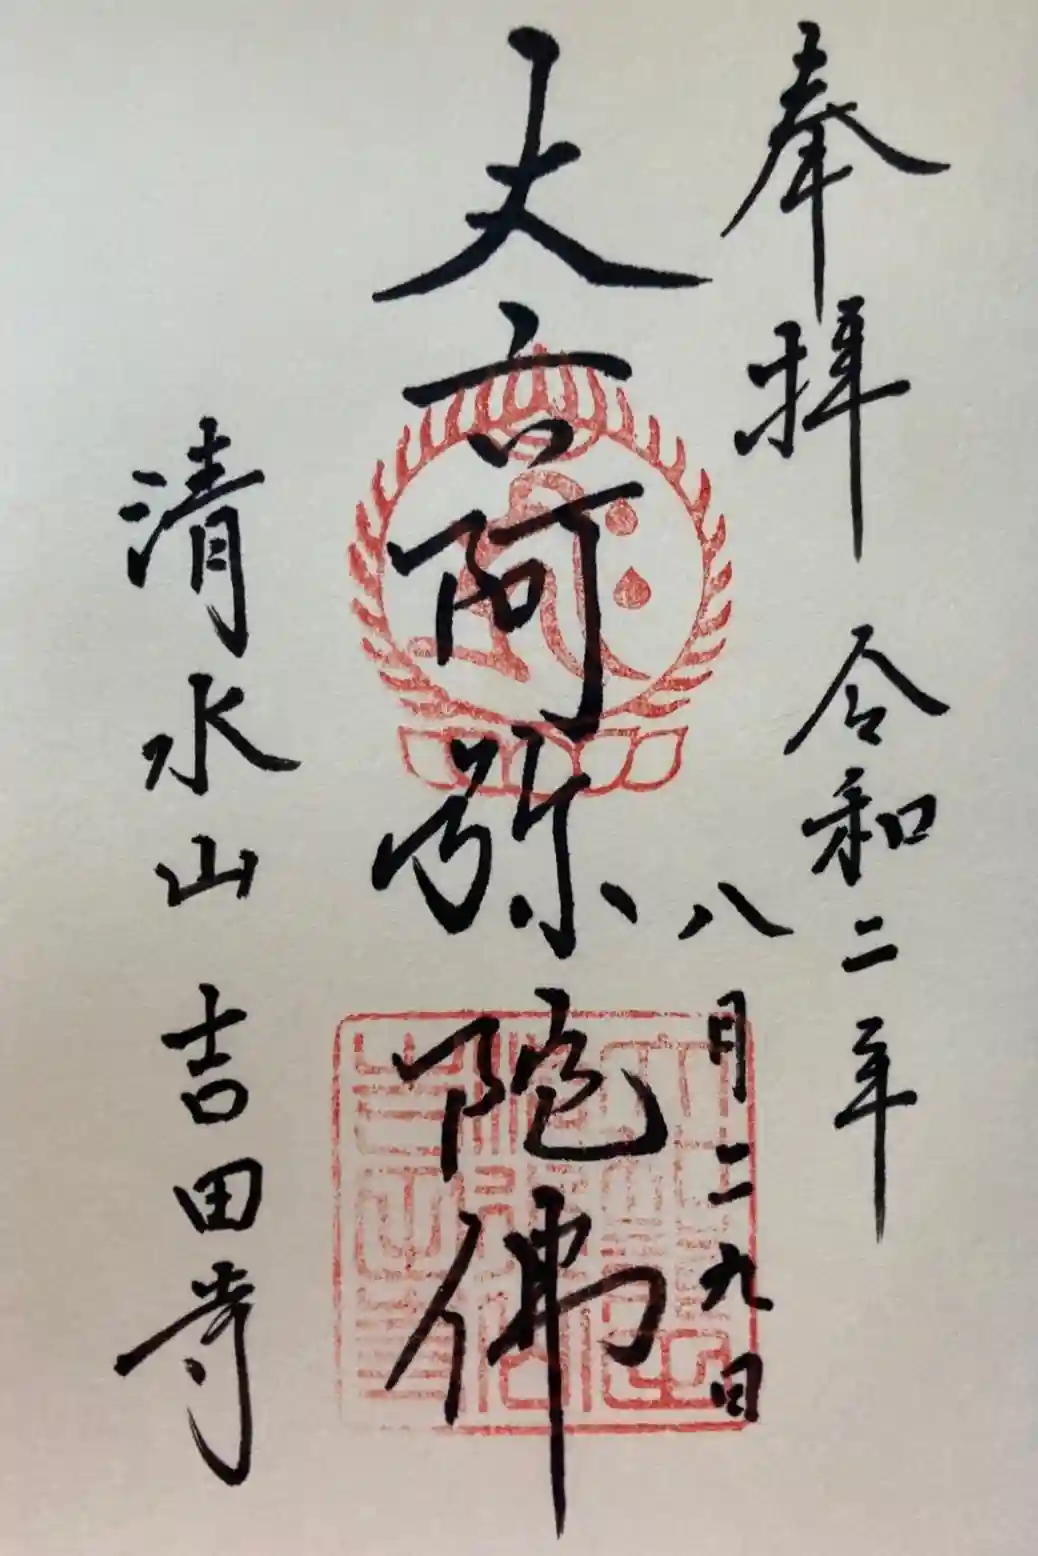 奉拝 令和二年
八月二九日
丈六阿弥陀佛
清水山吉田寺